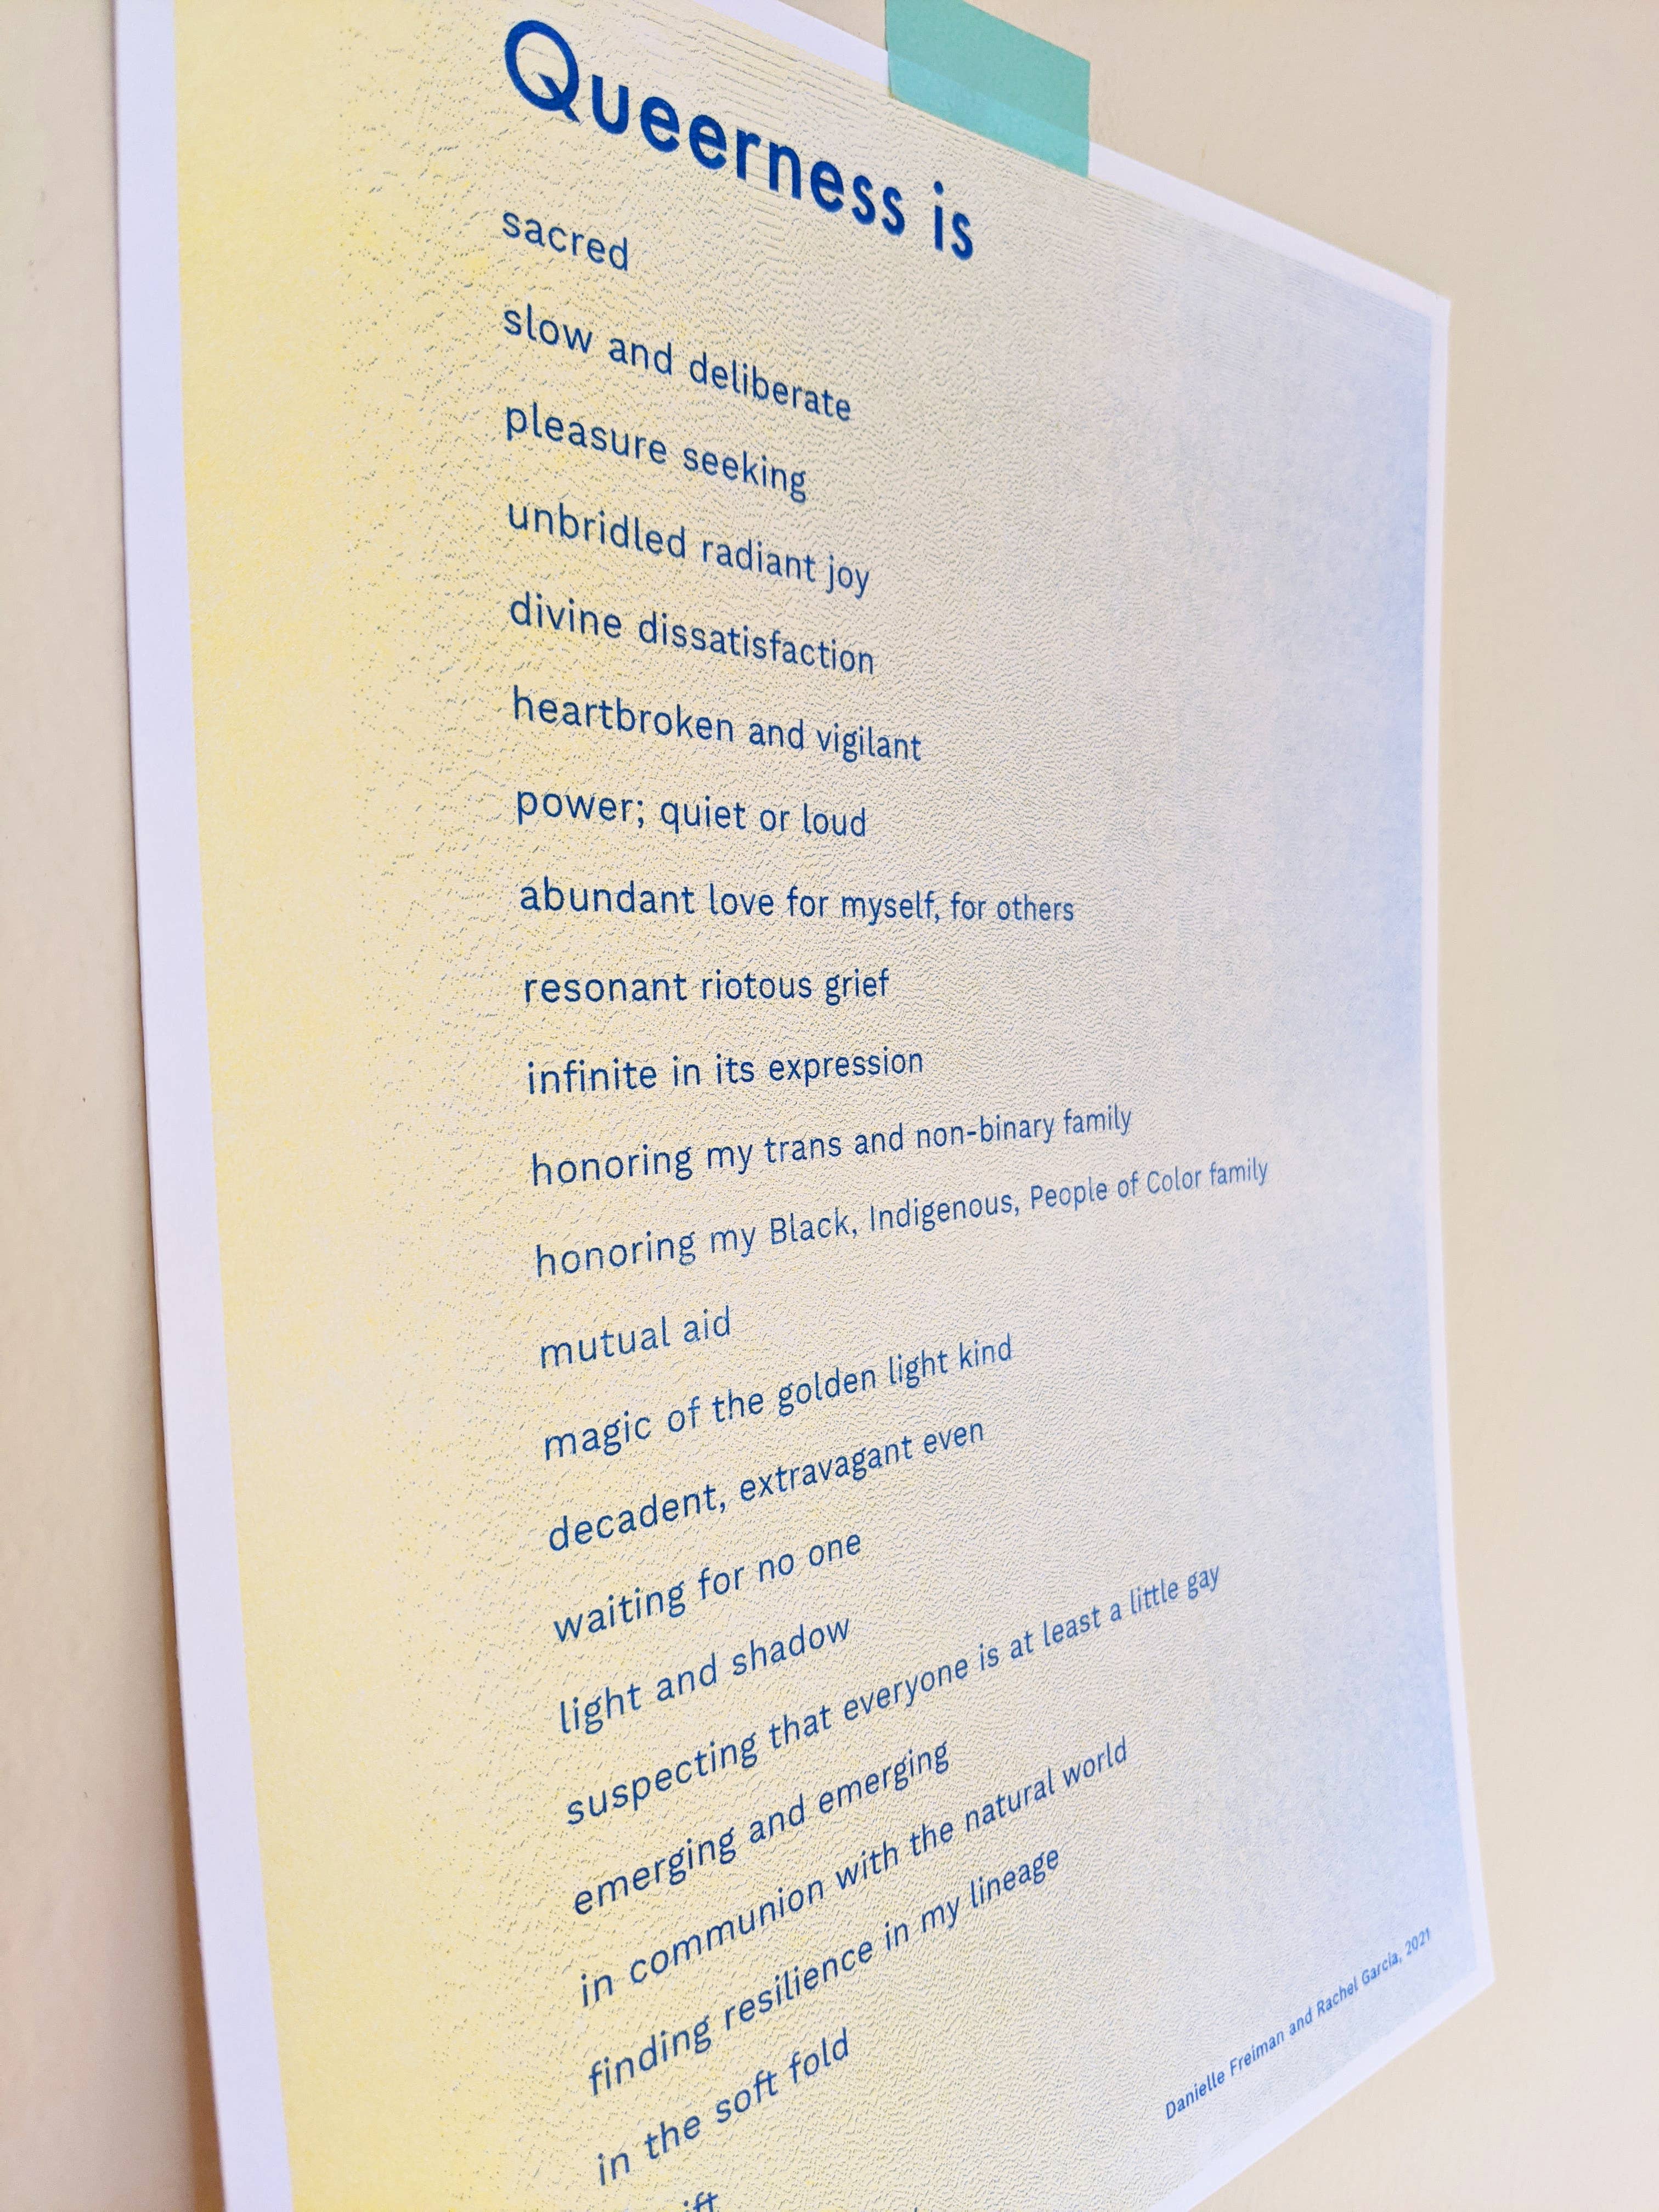 Queerness is
sacred
slow and deliberate
pleasure seeking
unbridled radiant joy
divine dissatisfaction
heartbroken and vigilant
power; quiet or loud
abundant love for myself, for others
resonant riotous grief
infinite in its expression
honoring my trans and non-binary family
honoring my Black, Indigenous, People of Color family
mutual aid
magic of the golden light kind
decadent, extravagant even
waiting for no one
light and shadow
suspecting that everyone is at least a little gay
emerging and emerging
in communion with the natural world
finding resilience in my lineage
in the soft fold
Danielle Freiman and Rachel Garcia, 2021